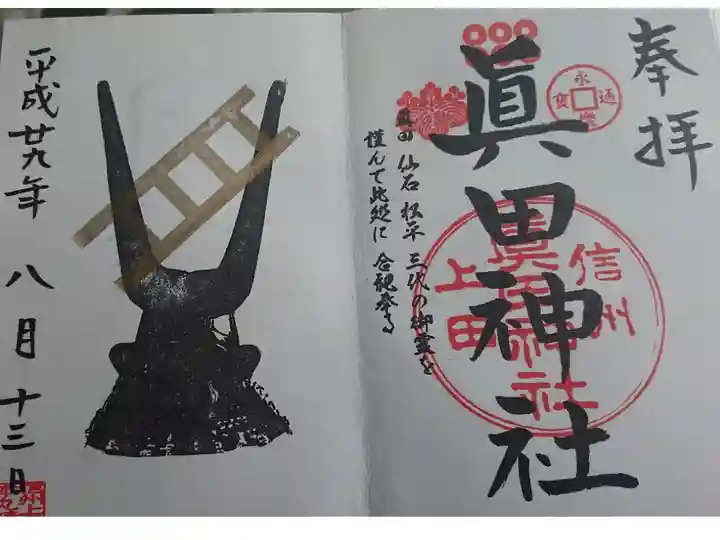 奉拝
眞田神社
永通寳
信州
上田
眞田神社
真田 仙石 松平 三代の御霊を
謹んで此処に 合祀奉る
平成廿九年 八月十三日